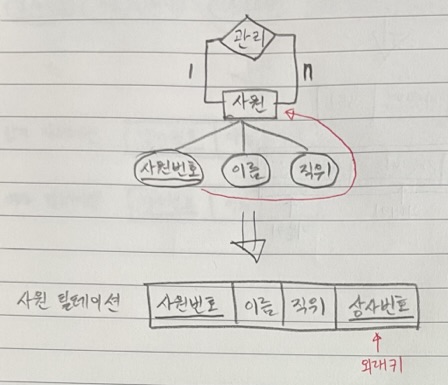 관리
1 n
사원
사원번호 이름 직위
사원 릴레이션 사원번호 이름 직위 상사번호
외래키